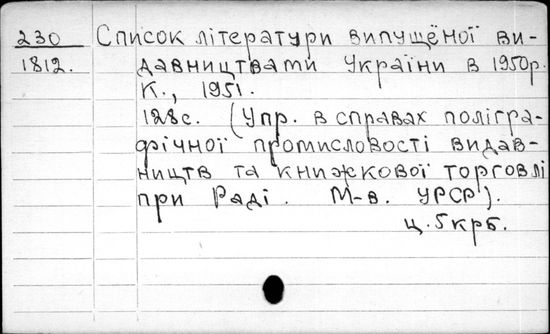 230 Список літератури випущёної ви-
1812. давництвами України в 1950р.
К., 1951.
128с. (Упр. в справах полігра-
фічної промисловості видав-
ництв та книжкової торговлі
при Раді. М-в. УРСР).
ц. 5 крб.